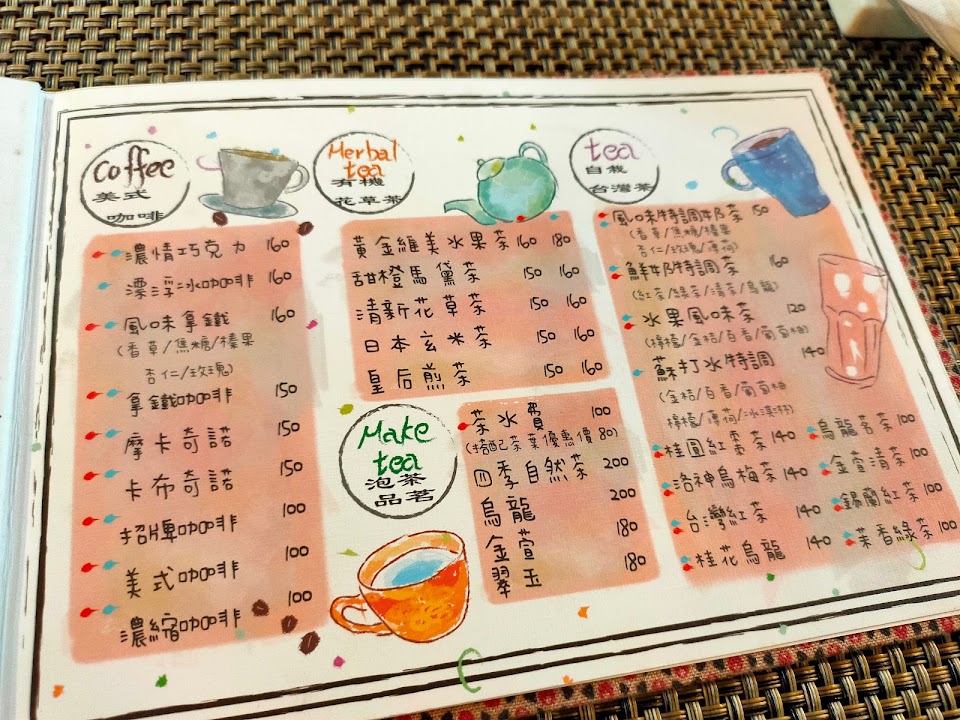 Coffee
美式
咖啡
濃情巧克力 160
漂浮冰咖啡 160
風味拿鐵 160
(香草/焦糖/榛果
杏仁/玫瑰)
拿鐵咖啡 150
摩卡奇諾 150
卡布奇諾 150
招牌咖啡 100
美式咖啡 100
濃縮咖啡 100
Herbal
tea
有機
花草茶
黃金維美水果茶 160 180
甜橙馬黛茶 150 160
清新花草茶 150 160
日本玄米茶 150 160
皇后煎茶 150 160
Make
tea
泡茶
品茗
茶水費 100
(搭配茶葉優惠價80)
四季自然茶 200
烏龍 200
金萱 180
翠玉 180
tea
自栽
台灣茶
風味特調奶茶 150
(香草/焦糖/榛果
杏仁/玫瑰/薄荷)
鮮奶特調茶 160
(紅茶/綠茶/清茶/烏龍)
水果風味茶 120
(檸檬/金桔/百香/葡萄柚)
蘇打水特調 140
(金桔/百香/葡萄柚
檸檬/薄荷/冰淇淋)
桂圓紅棗茶 140
洛神烏梅茶 140
台灣紅茶 140
桂花烏龍 140
烏龍茗茶 100
金萱清茶 100
錫蘭紅茶 100
茉香綠茶 100